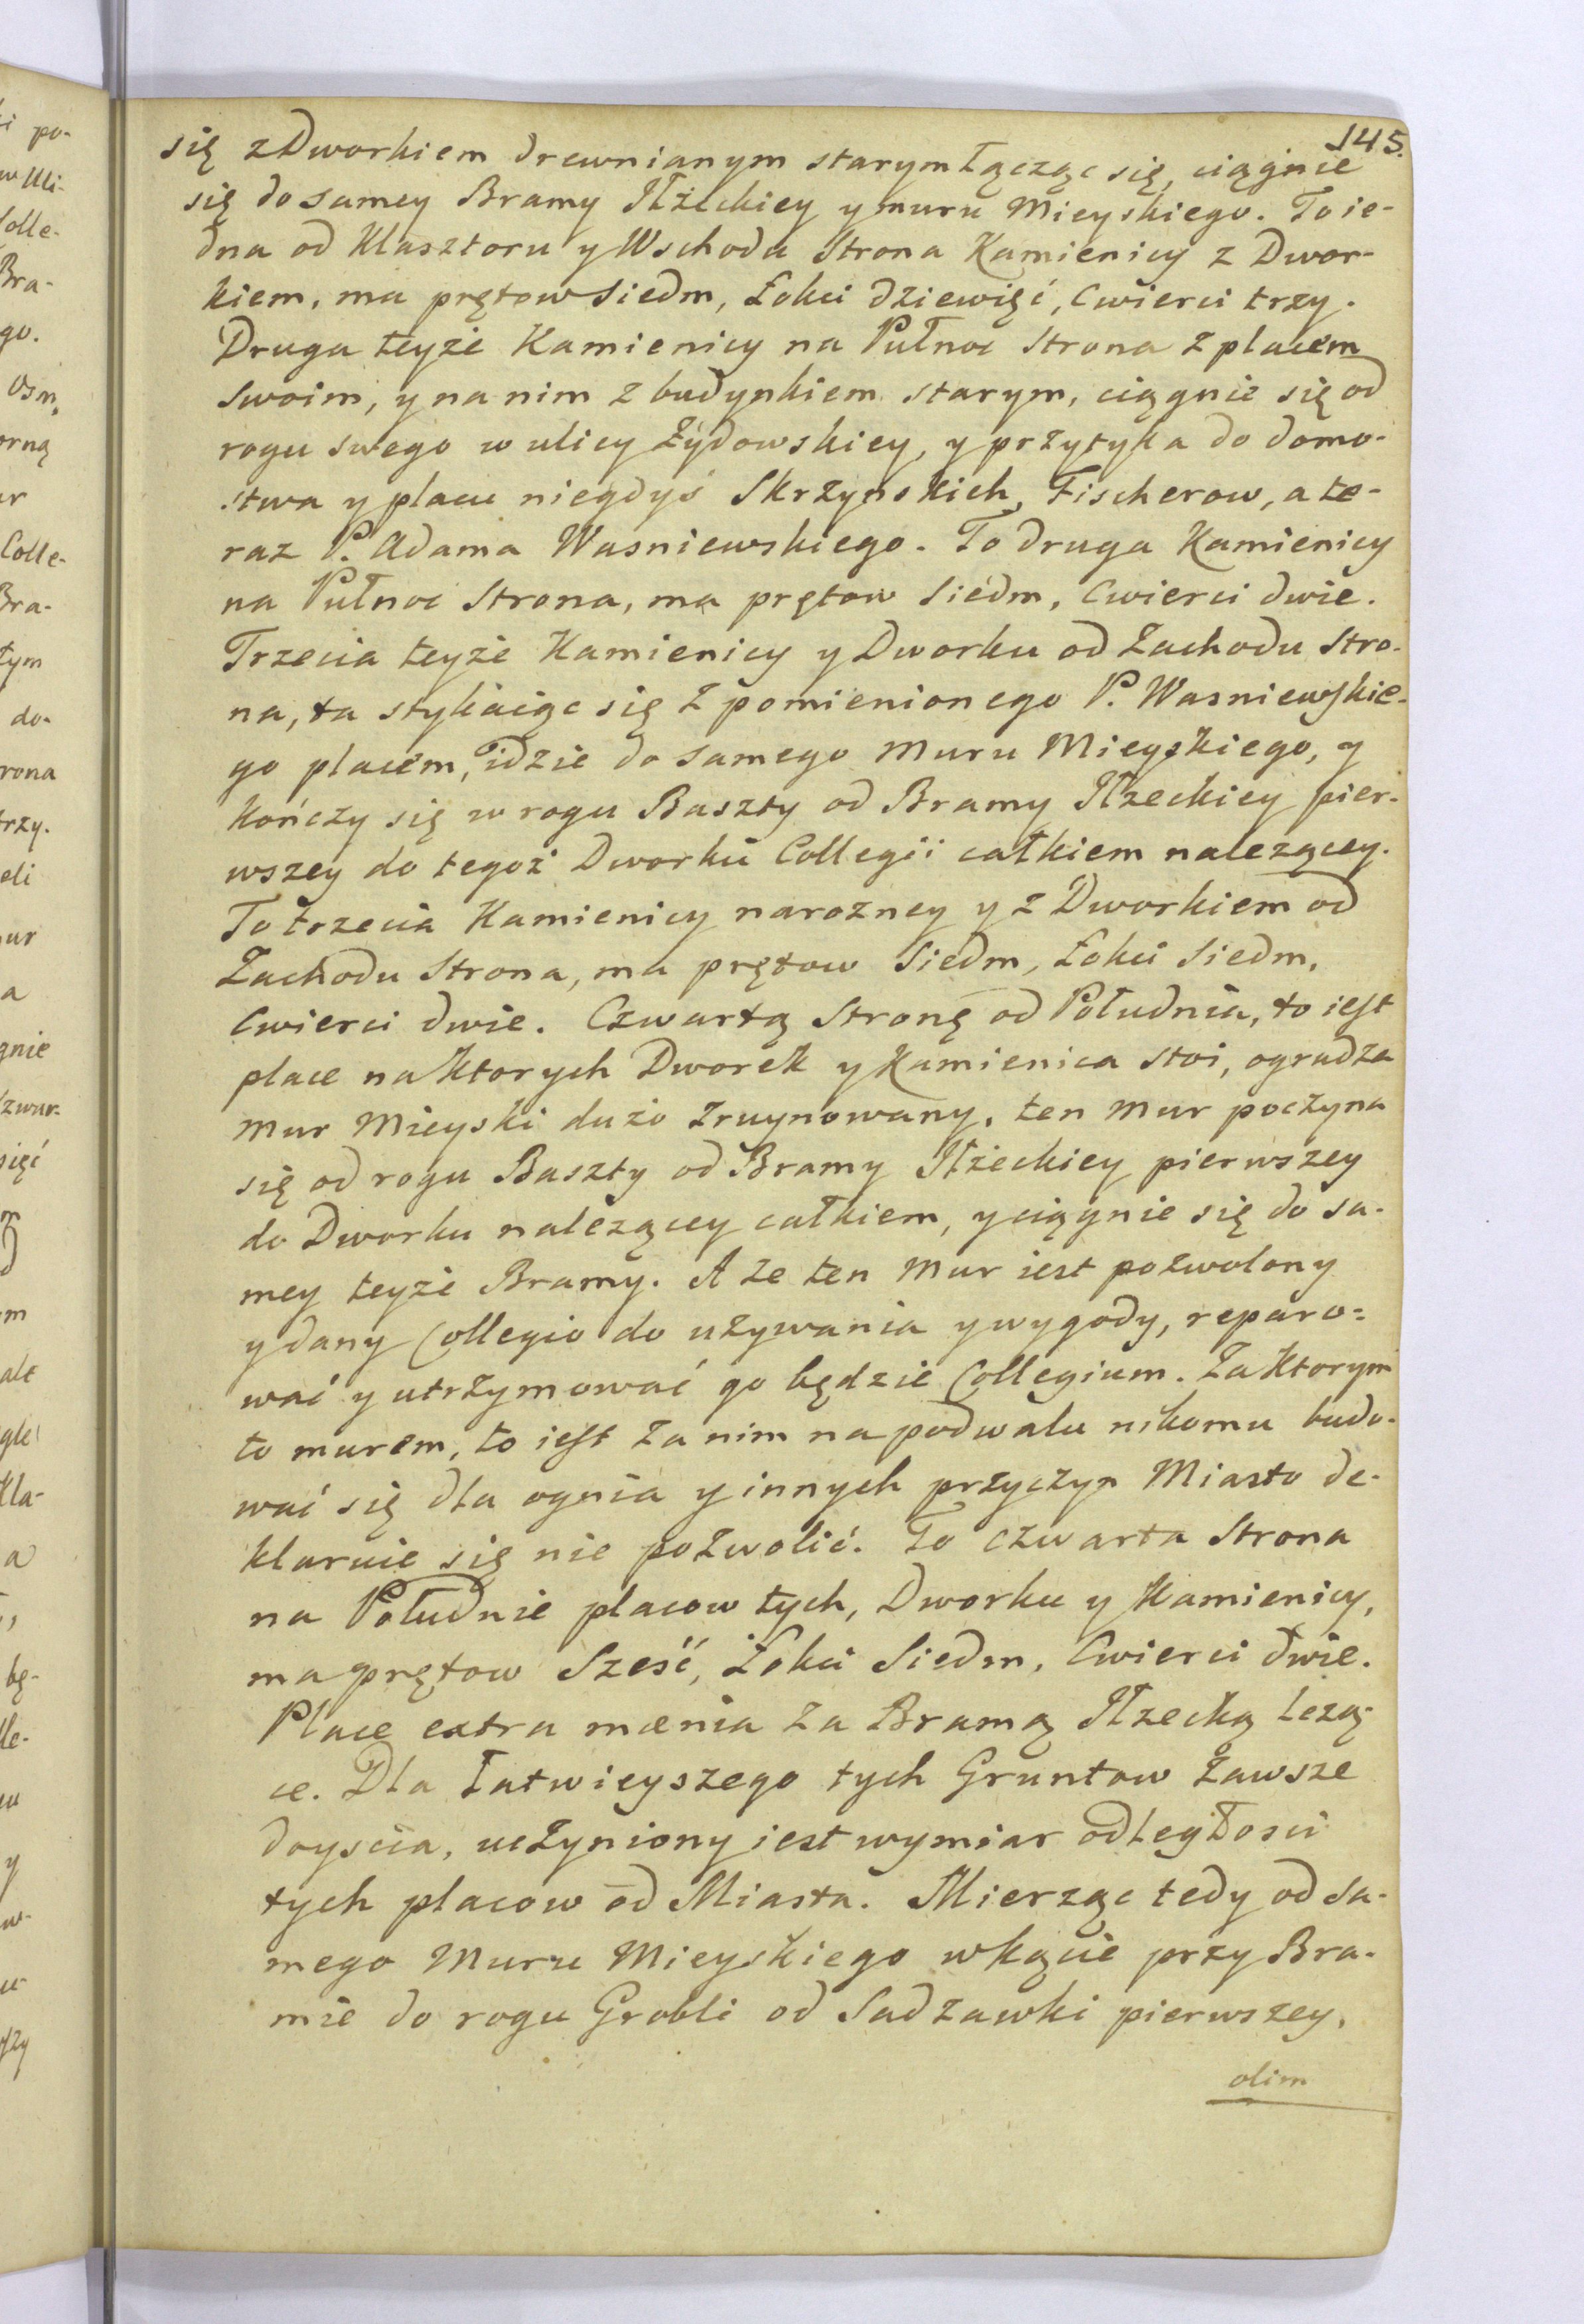 145.
się z Dworkiem drewnianym starym łącząc się, ciągnie
się do samey Bramy Iłżeckiey y muru Mieyskiego. To ie-
dna od Klasztoru y Wschodu Strona Kamienicy z Dwor-
kiem, ma prętow Siedm, Łokci dziewięć, Cwierci trzy.
Druga teyże Kamienicy na Pułnoc Strona z placem
Swoim, y na nim z budynkiem starym, ciągnie się od
rogu swego w ulicy Żydowskiey, y przytyka do domo-
stwa y placu niegdyś Skrzynskich, Fischerow, a te-
raz P. Adama Wasniewskiego. To druga Kamienicy
na Pułnoc Strona, ma prętow Siedm, Cwierci dwie.
Trzecia teyże Kamienicy y Dworku od Zachodu Stro-
na, ta stykaiąc się z pomienionego P. Wasniewskie-
go placem, idzie do samego Muru Mieyskiego, y
kończy się w rogu Baszty od Bramy Iłzeckiey pier-
wszey do tegoż Dworku Collegii całkiem nalezącey.
To trzecia Kamienicy narozney y z Dworkiem od
Zachodu Strona, ma prętow Siedm, Łokci Siedm,
Cwierci dwie. Czwartą Stronę od Południa, to iest
place na Ktorych Dworek y Kamienica stoi, ogradza
Mur Mieyski dużo zruynowany, ten Mur poczyna
się od rogu Baszty od Bramy Iłżeckiey pierwszey
do Dworku nalezącey całkiem, y ciągnie się do sa-
mey teyże Bramy. A ze ten Mur iest pozwolony
y dany Collegio do używania y wygody, reparo=
wać y utrzymować go będzie Collegium. Za Ktorym
to murem, to iest za nim na podwalu nikomu budo-
wać się dla ognia y innych przyczyn Miasto de-
klaruie się nie pozwolić. To czwarta Strona
na Południe placow tych, Dworku y Kamienicy,
ma prętow Sześć, Łokci Siedm, Cwierci dwie.
Place extra mænia za Bramą Iłzecką lezą-
ce. Dla łatwieyszego tych Gruntow zawsze
doyscia, uczyniony iest wymiar odległosci
tych placow od Miasta. Mierząc tedy od sa-
mego Muru Mieyskiego w kącie przy Bra-
mie do rogu Grobli od Sadzawki pierwszey,
olim